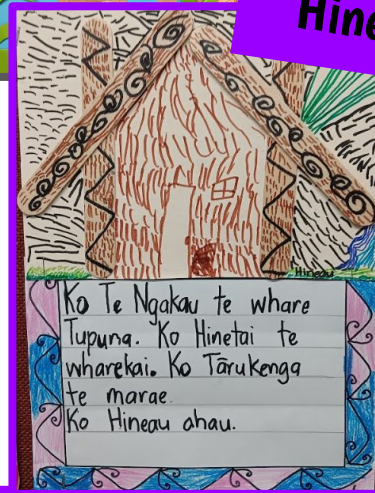 Hine
Hineau
Ko Te Ngakau te whare
Tupuna. Ko Hinetai te
wharekai. Ko Tārukenga
te marae.
Ko Hineau ahau.